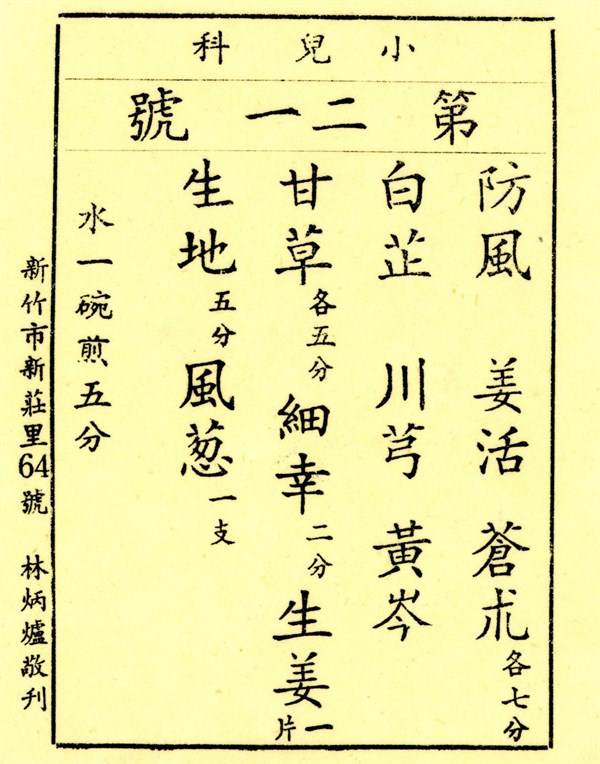 小兒科
第二一號
防風 姜活 蒼朮各七分
白芷 川芎 黃岑
甘草各五分 細幸二分 生姜一片
生地五分 風葱一支
水一碗煎五分
新竹市新莊里64號 林炳爐敬刊